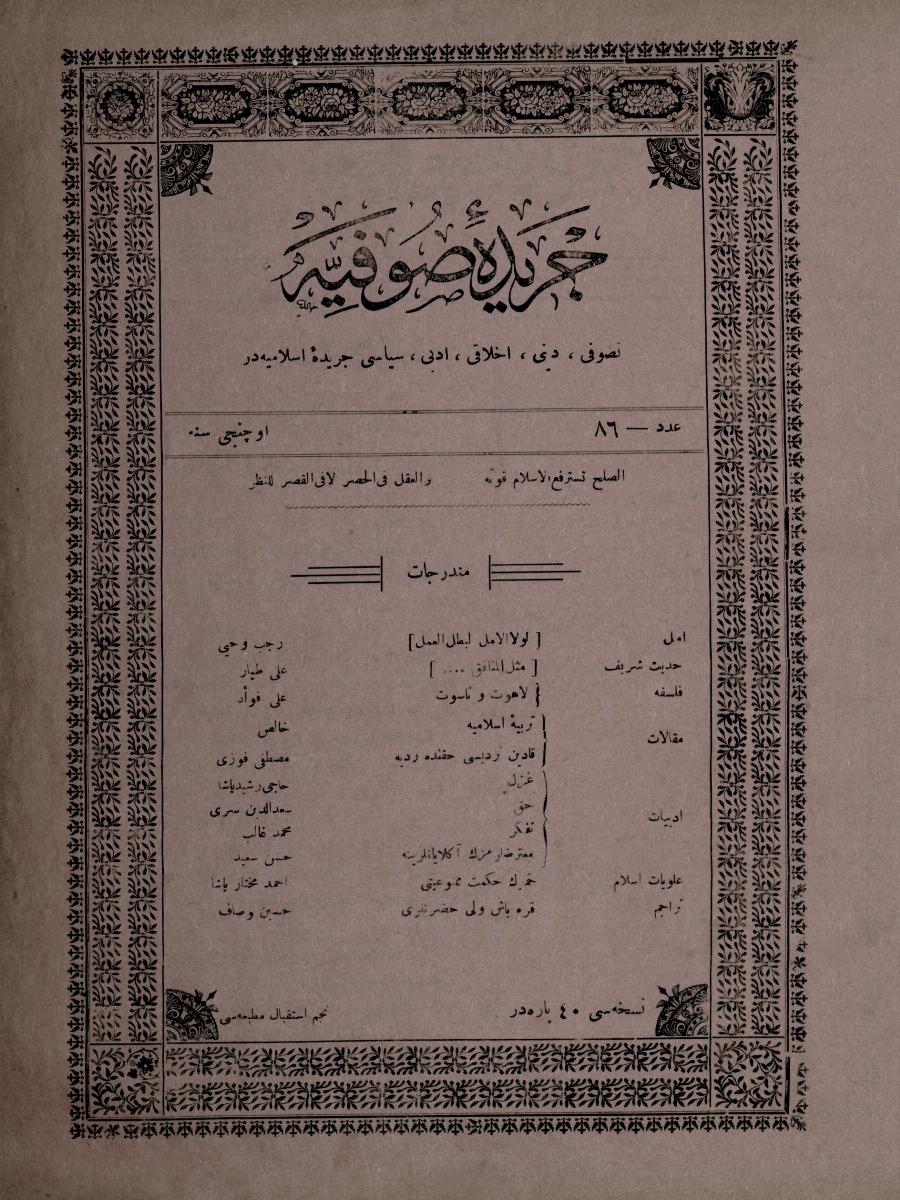 جريدۀ صوفيه
تصوفى ، دينى ، اخلاقى ، ادبى ، سياسى جريدۀ اسلاميه‌در
عدد — ٨٦ اوچنجى سنه
الصلح تسترفع الاسلام قوته والعقل فى الحصر لا فى القصر للنظر
مندرجات
امل [ لولا الامل لبطل العمل ] رجب وحيى
حديث شريف [ مثل المنافق .... ] على طيار
فلسفه لاهوت و ناسوت على فوأد
مقالات تربيۀ اسلاميه خالص
قادين حقنده رديه مصطفى فوزى
ادبيات غزل حاجى رشيد پاشا
حق سعدالدين سرى
تفكر محمد غالب
معترضلرمزك آكلايانلرينه حسن سعيد
علويات اسلام خمرك حكمت ممنوعيتى احمد مختار پاشا
تراجم قره باش ولى حضرتلرى حسين وصاف
نسخه‌سى ٤٠ پاره‌در نجم استقبال مطبعه‌سى